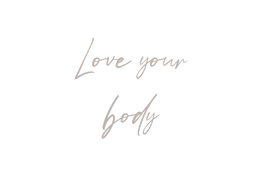 Love your
body